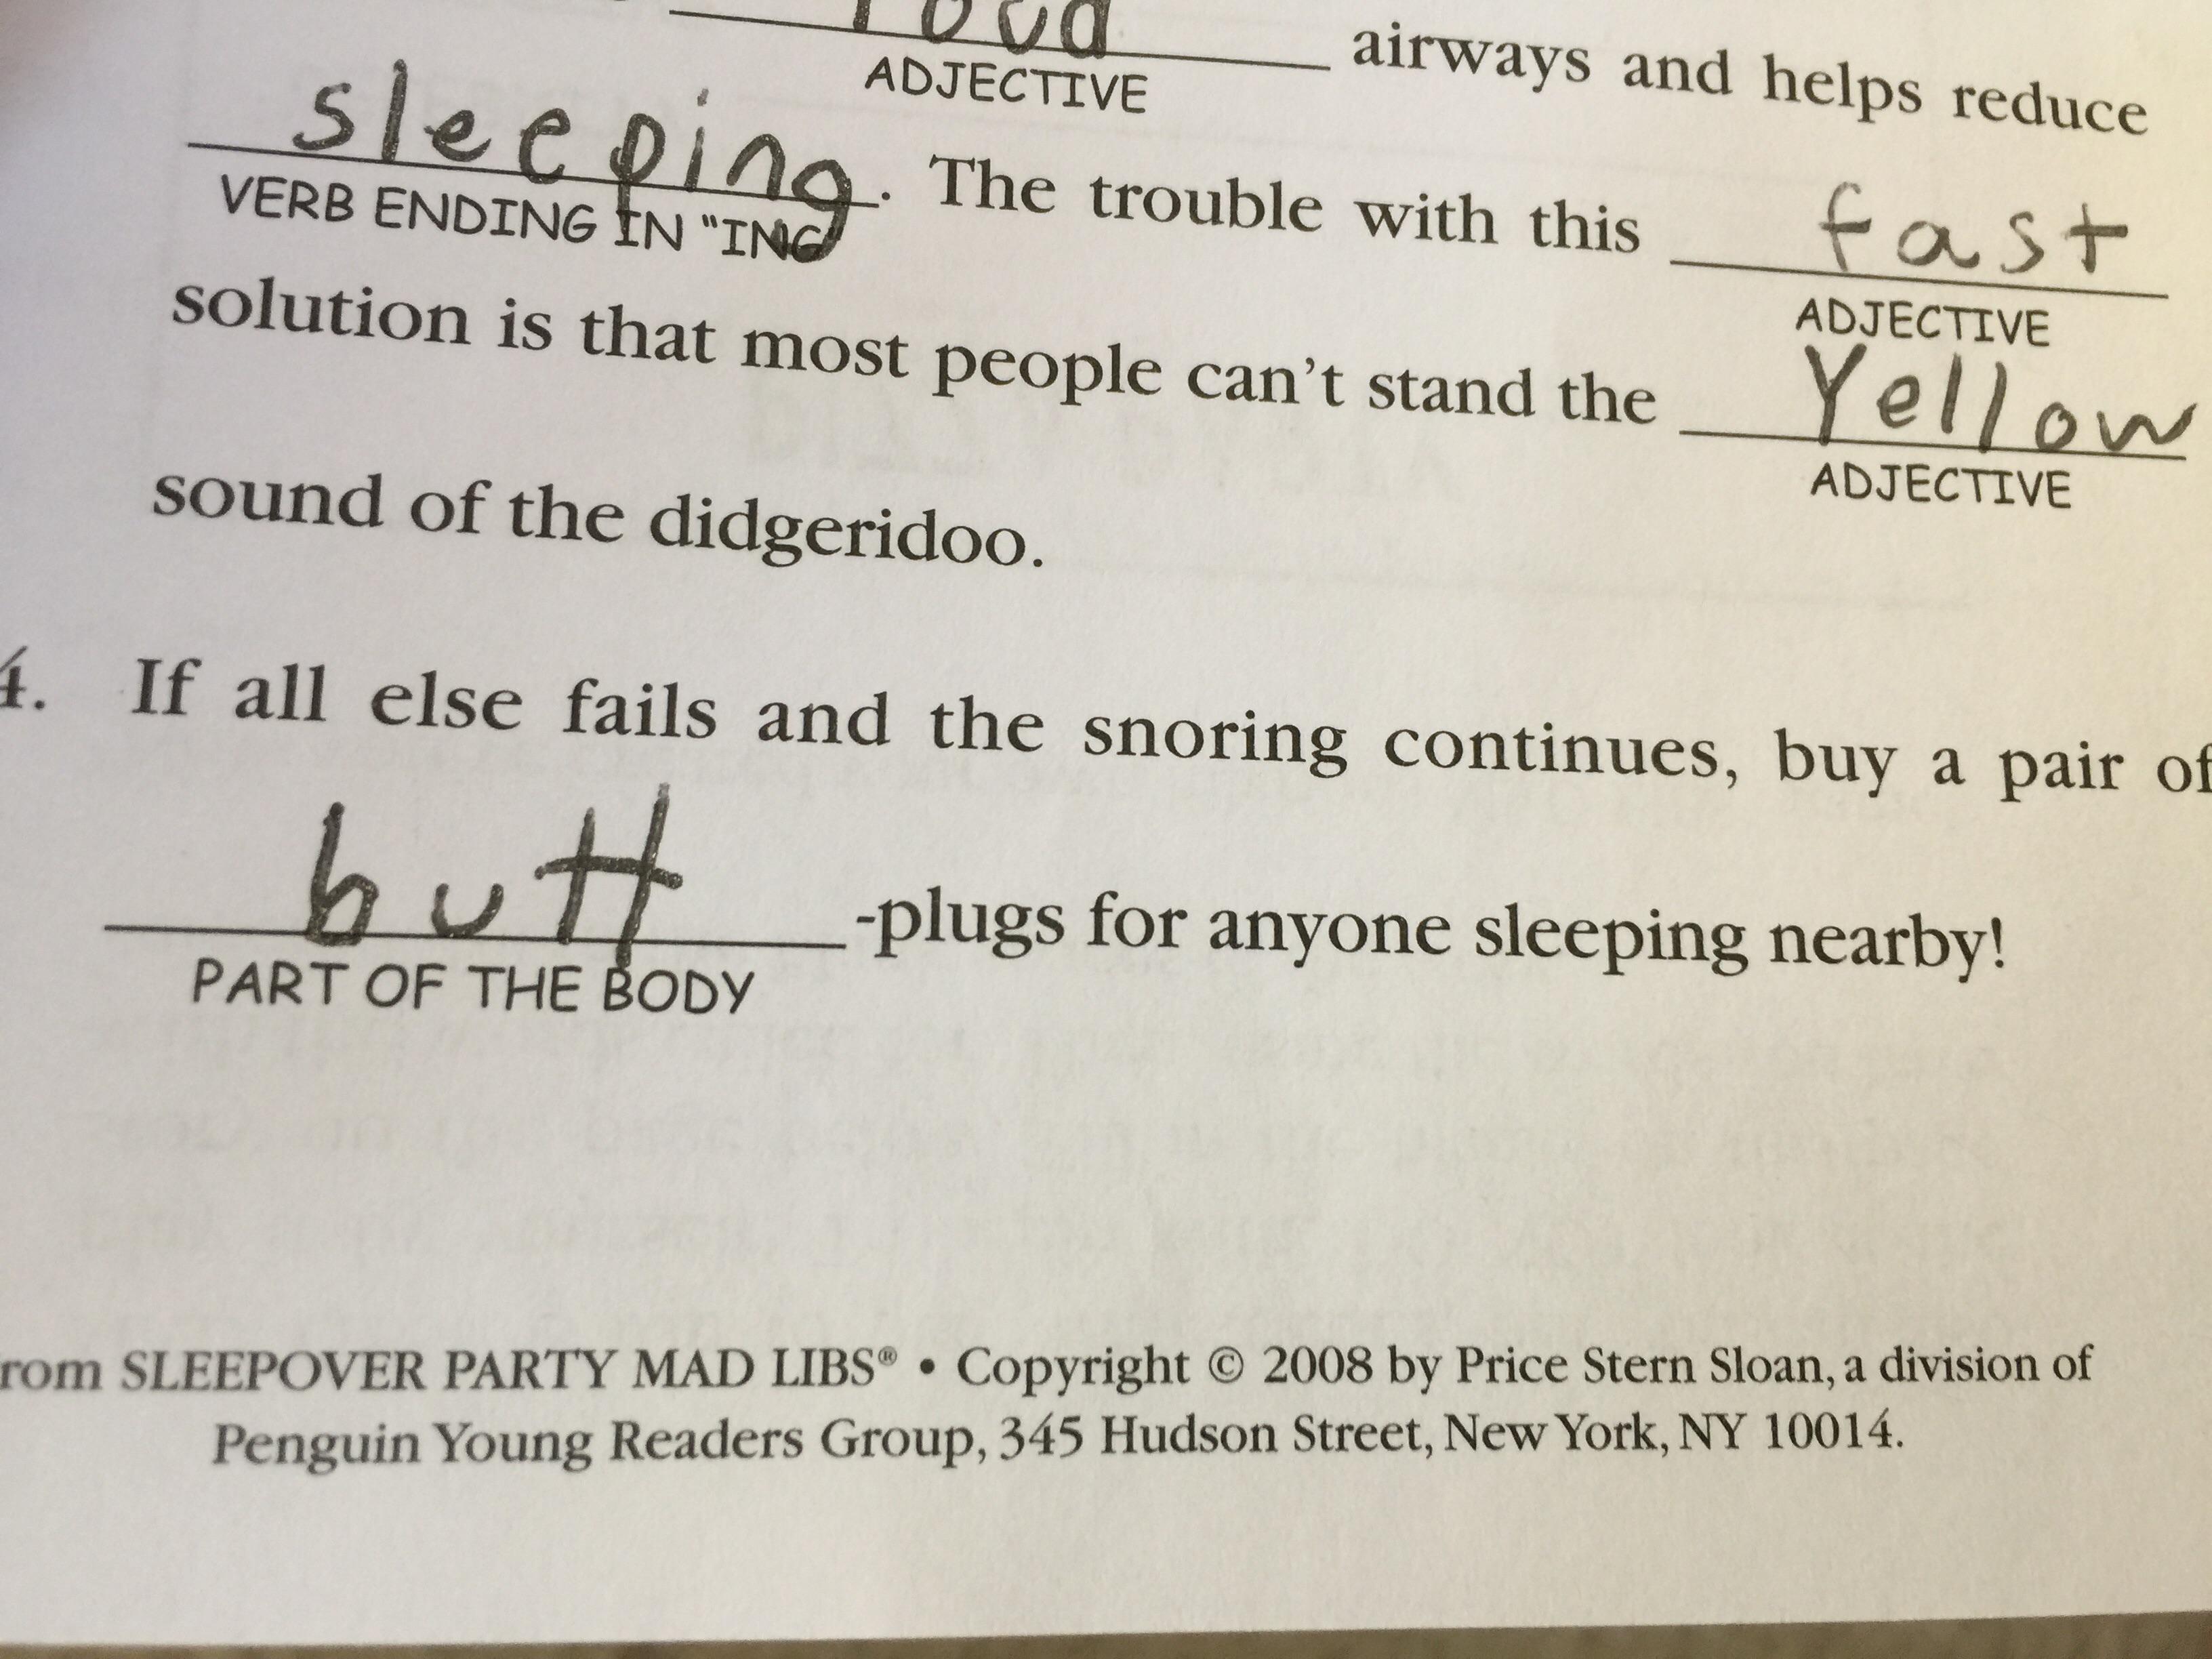 loud airways and helps reduce
ADJECTIVE
sleeping. The trouble with this fast
VERB ENDING IN "ING"
ADJECTIVE
solution is that most people can't stand the Yellow
ADJECTIVE
sound of the didgeridoo.
4. If all else fails and the snoring continues, buy a pair of
butt-plugs for anyone sleeping nearby!
PART OF THE BODY
rom SLEEPOVER PARTY MAD LIBS® • Copyright © 2008 by Price Stern Sloan, a division of
Penguin Young Readers Group, 345 Hudson Street, New York, NY 10014.